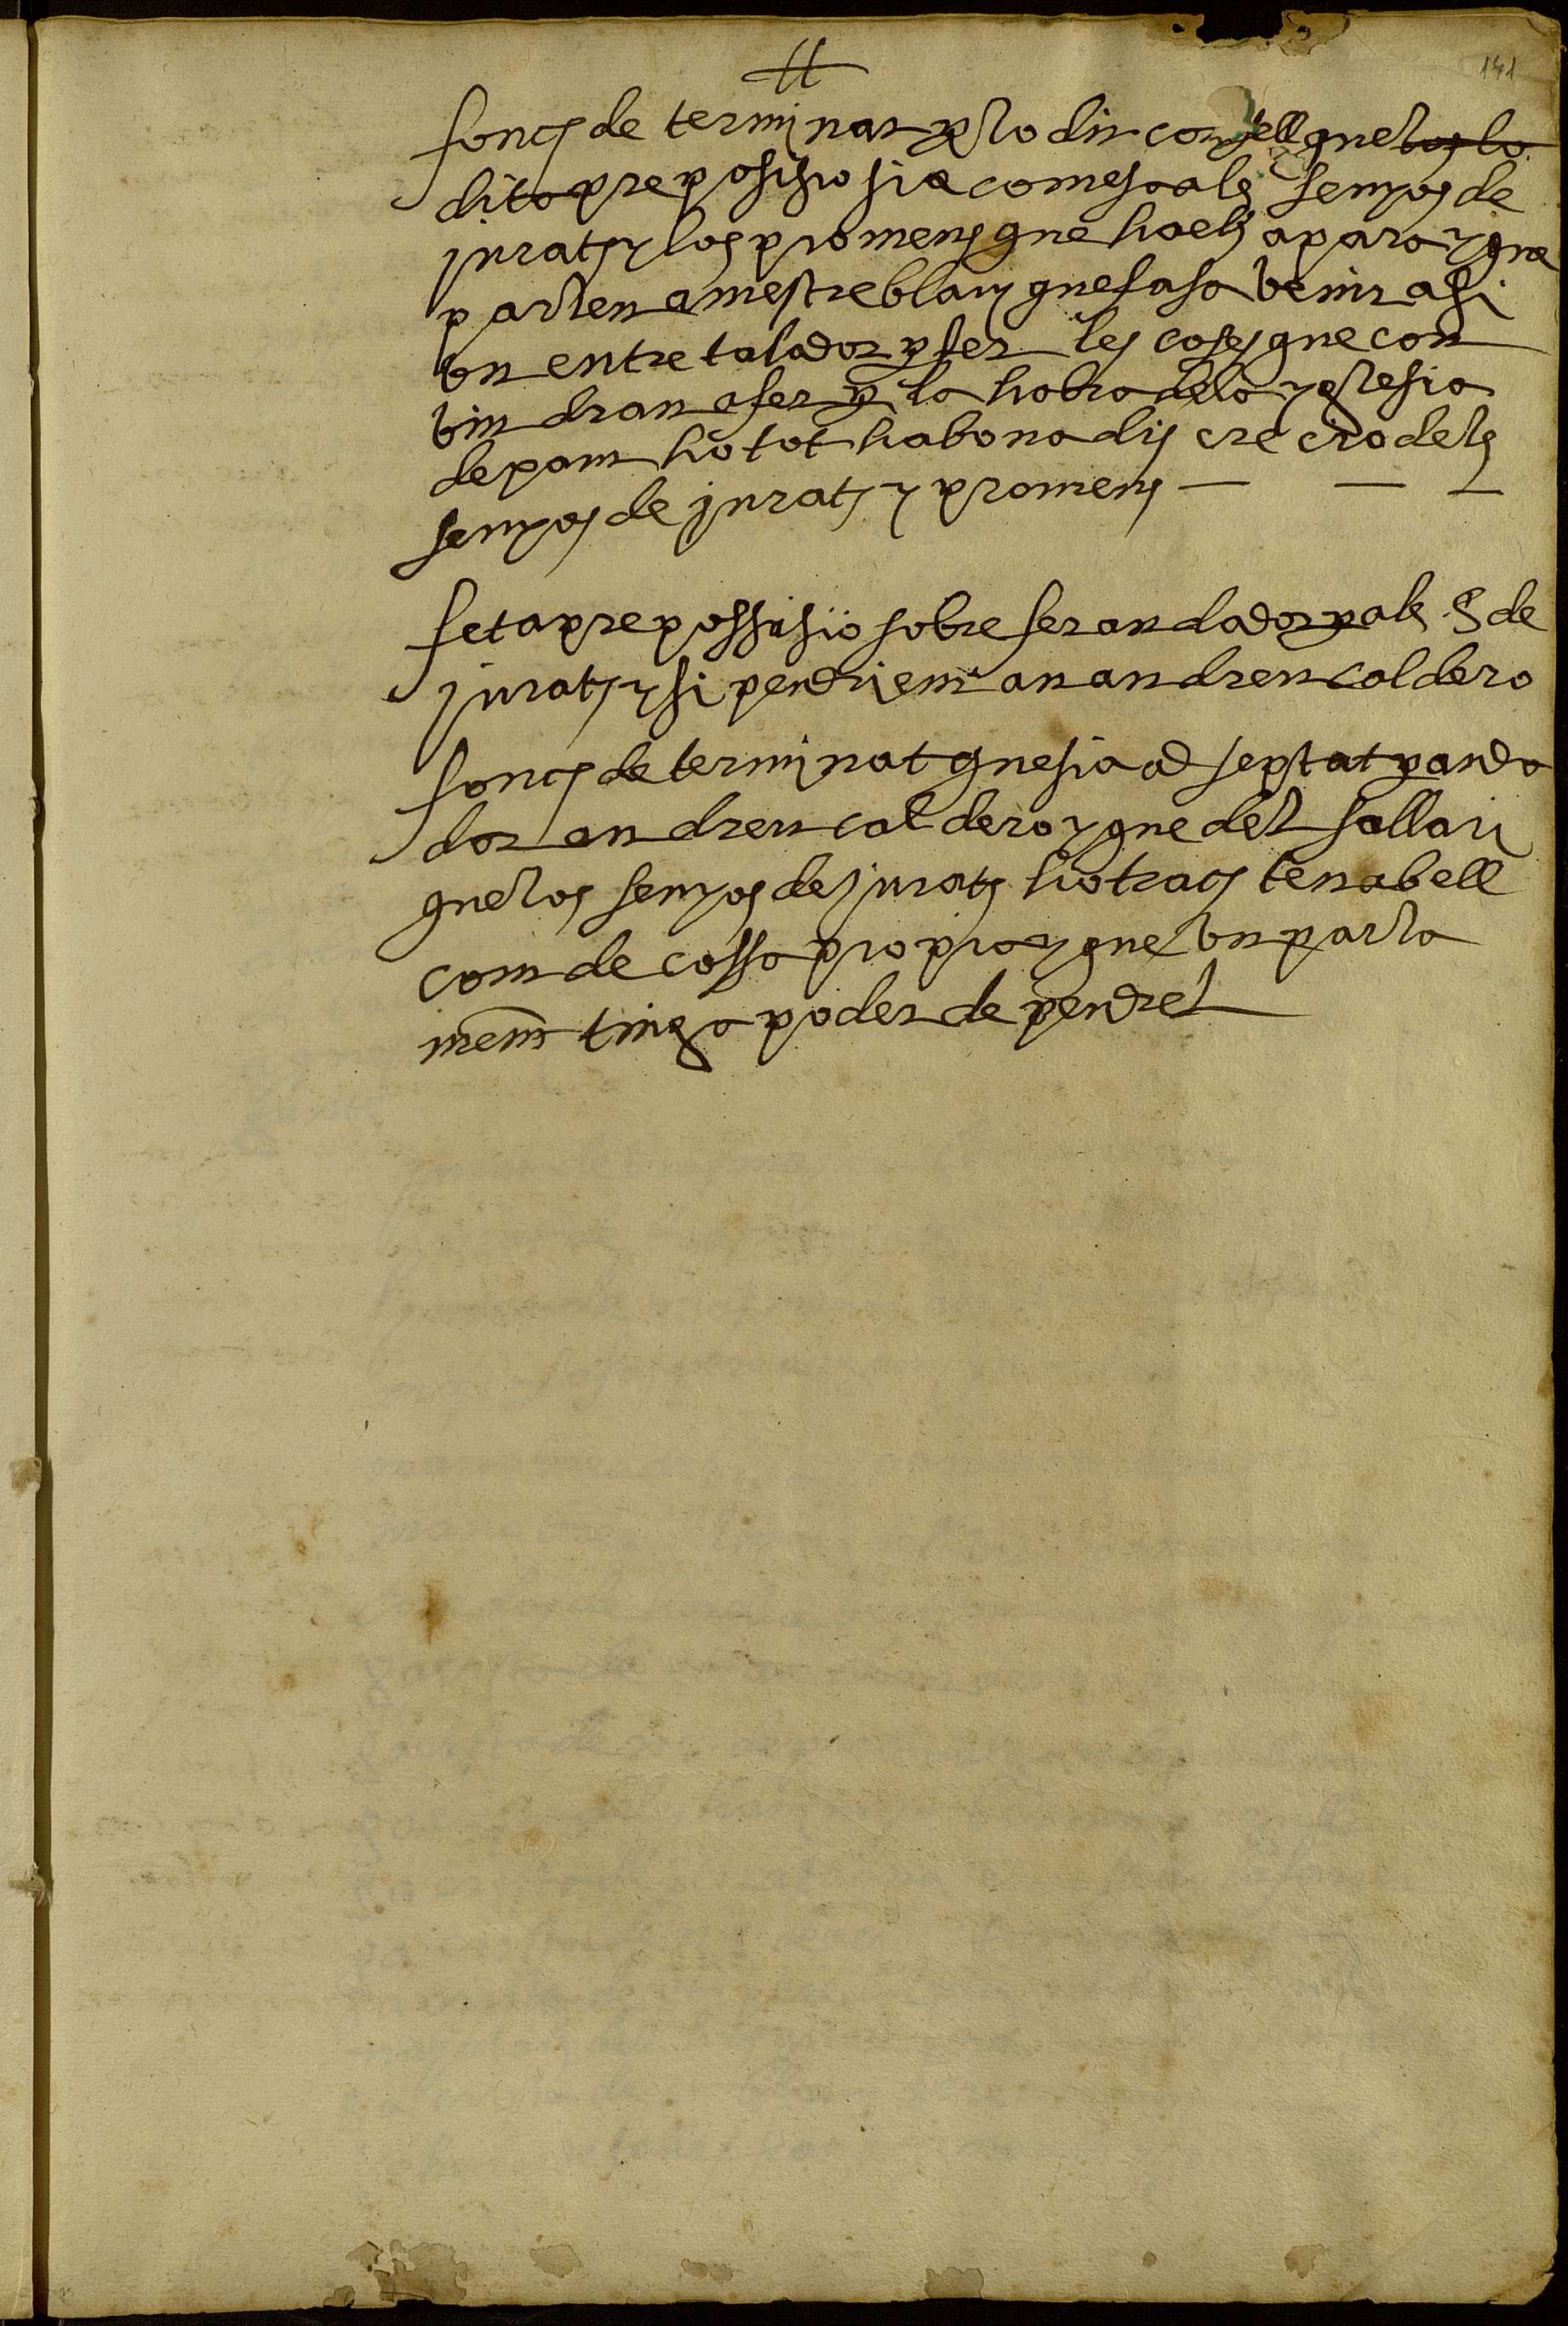 141
fonch de terminat per lo dit consell que los la
dita preposisio sia comesa als senyos de
jurats y los promens que ho els apara y que
parlen a mestre blay que fasa venir asi
un entretalador per fer les coses que con
vin dran a fer per la hobra de la yglesia
de pam ho tot ha bona discrecio dels
senyos de jurats y promens — — —
feta prepossisio sobre fer andador per als S de
jurats y si pendriem an andreu caldero
fonch de terminat que sia adseptat per anda
dor andreu caldero y que del sallari
que los senyos de jurats ho tracten abell
com de cossa propia y que lon parla
ment tinga poder de pendrel